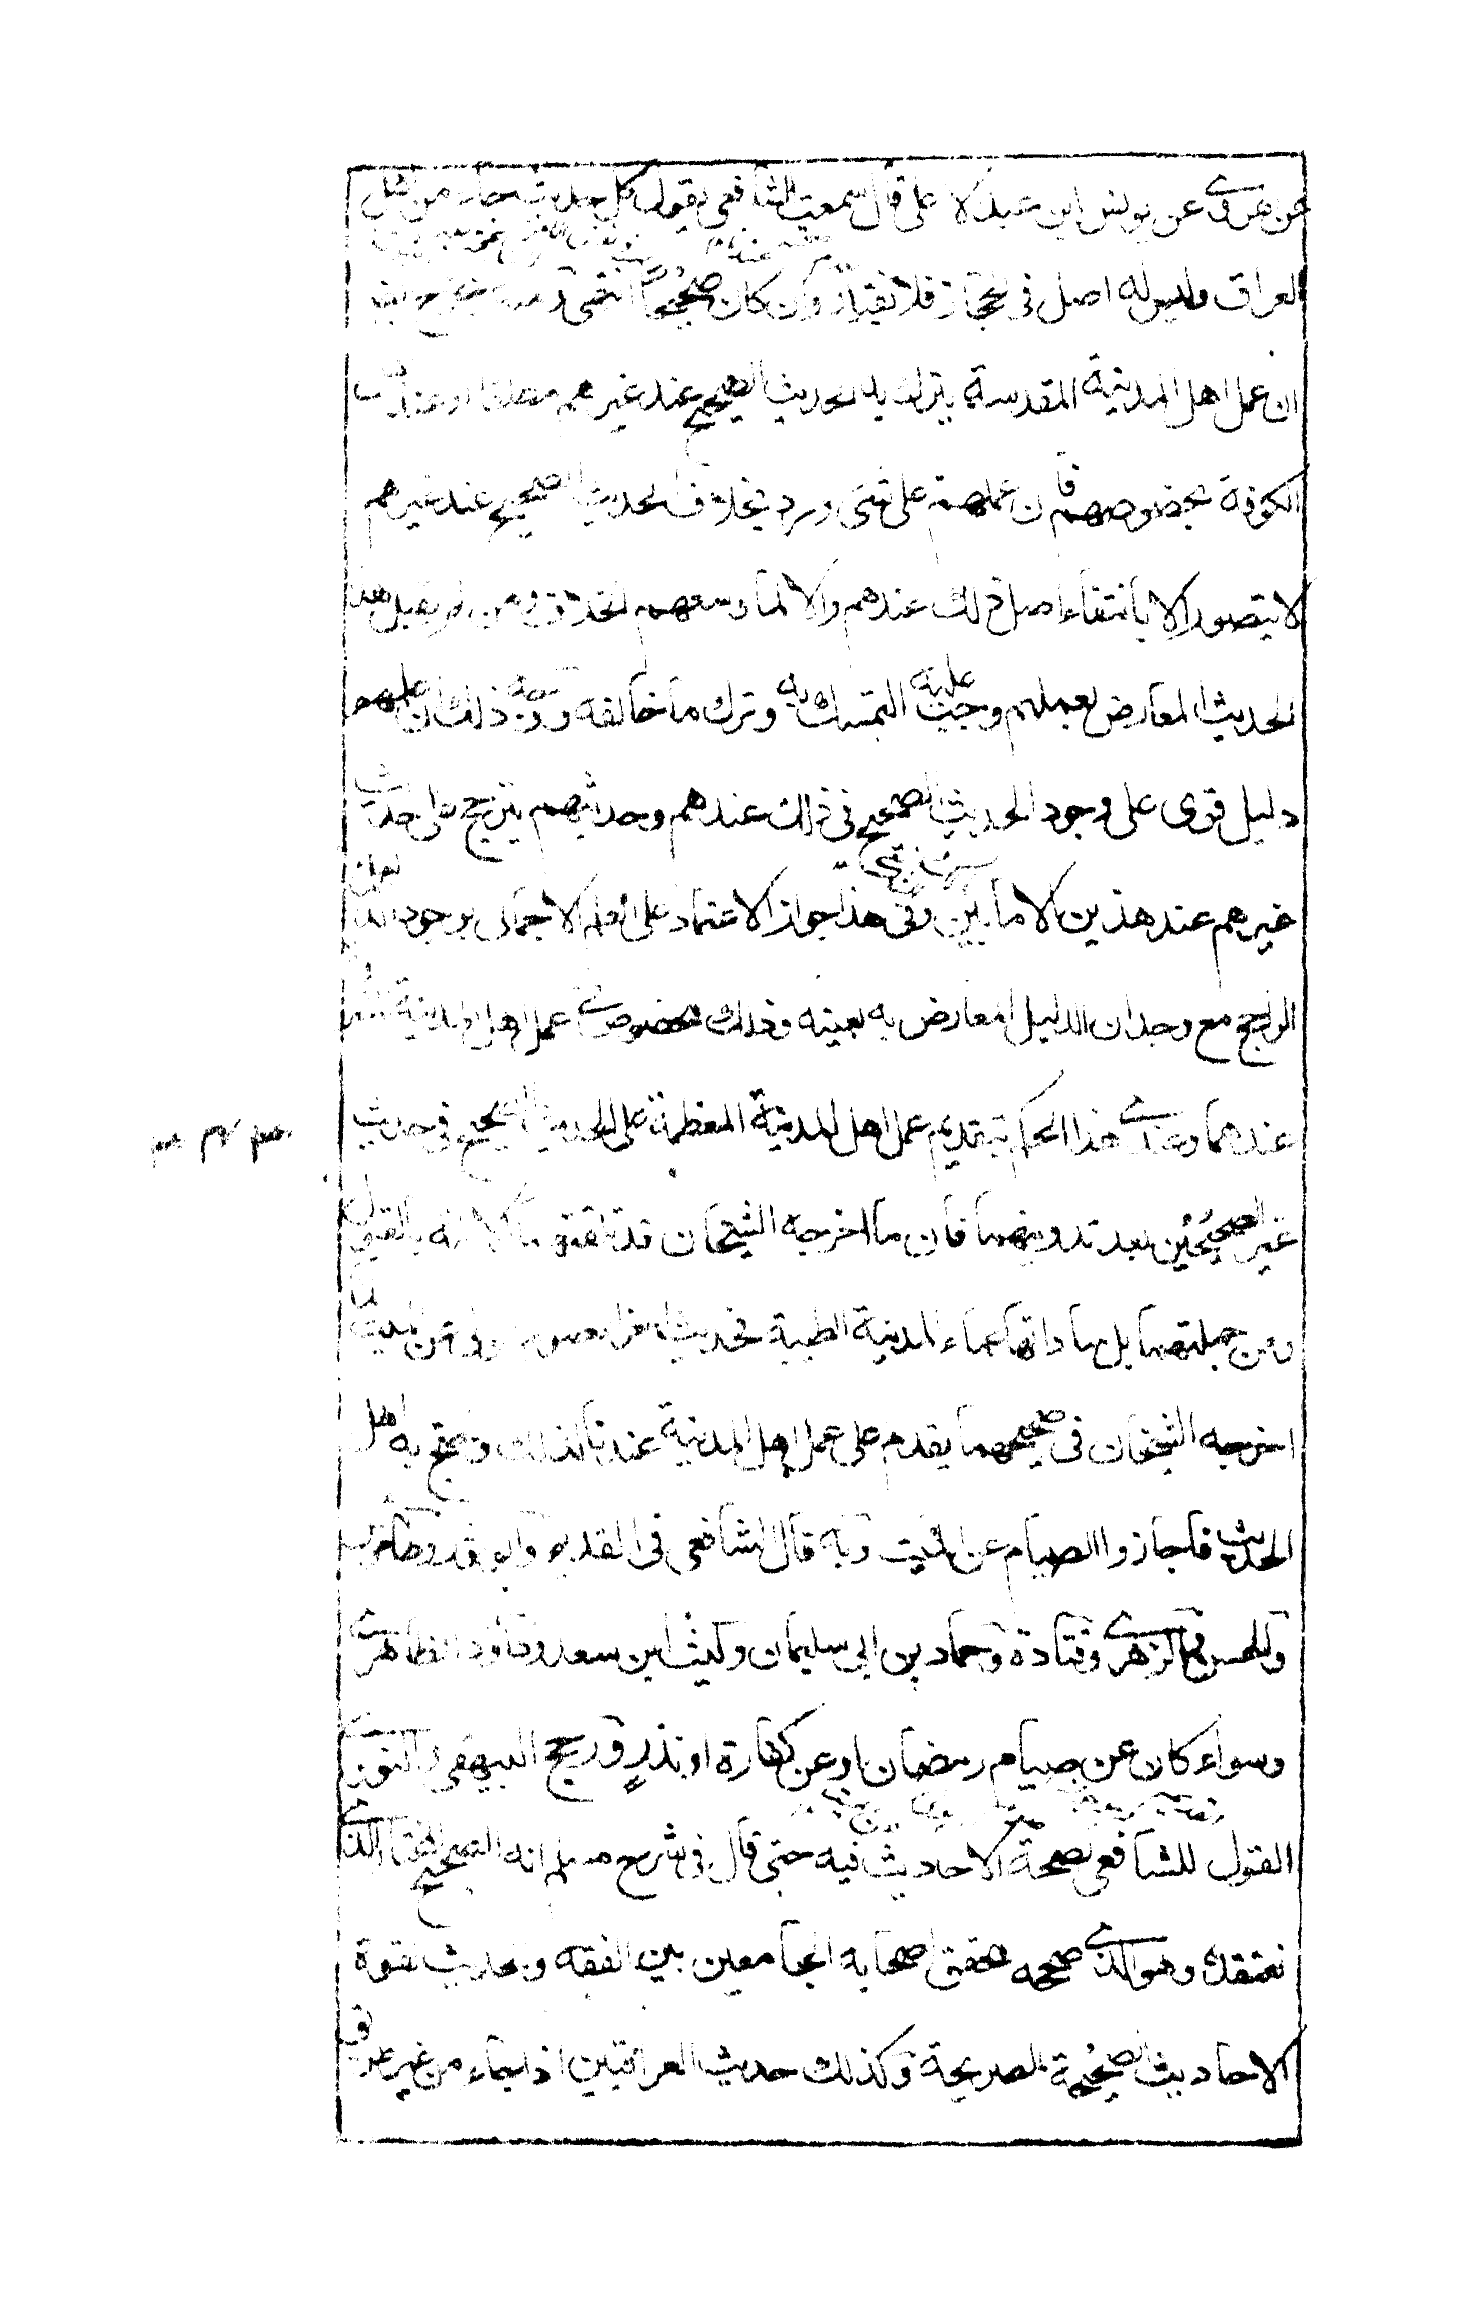 عن هروي عن يونس ابن عبد الاعلى قال سمعت الشافعي يقول كل حديث جاء من
العراق وليس له اصل في الحجاز فلا تقبله وان كان صحيحا انتهى
ان عمل اهل المدنية المقدسة يترك به الحديث الصحيح عند غيرهم مطلقا او عند
الكوفة بخصوصهم فان عملهم على شئ ورد بخلاف الحديث الصحيح عند غيرهم
لا يتصور الا بانتفاء اصل ذلك عندهم والا لما وسعهم الخلاف ومن لم يقبل هذا
الحديث المعارض لعملهم وجب عليه التمسك به وترك ما خالفه ووجه ذلك ان عملهم
دليل قوى على وجود الحديث الصحيح في ذلك عندهم وحديثهم يترجح على حديث
غيرهم عند هذين الامامين وفي هذا جواز الاعتماد على العلم الاجمالى بوجود
الراجح مع وجدان الدليل المعارض به بعينه وذلك بخصوصي عمل اهل المدنية
عندهما وعندي هذا الحكم بتقديم عمل اهل المدنية المعظمة على الحديث الصحيح في حديث
غير الصحيحين بعد تدوينهما فان ما اخرجه الشيخان قد تلقتهما الامة بالقبول
ومن جملتهما بل ساداتها علماء المدنية الطيبة فحديث
اخرجه الشيخان في صحيحهما يقدم على عمل اهل المدنية عندنا لذلك واحتج به اهل
الحديث فاجازوا الصيام عن الميت وبه قال الشافعي في القديم وابو ثور وطاؤس
والحسن والزهري وقتادة وحماد بن ابي سليمان وليث ابن سعد وداود الظاهري
وسواء كان عن صيام رمضان او عن كفارة او نذر ورجح البيهقي والنووي
القول للشافعي لصحة الاحاديث فيه حتى قال في شرح مسلم انه الصحيح المختار الذي
نعتقده وهو الذي صححه محققوا اصحابه الجامعين بين الفقه والحديث لقوة
الاحاديث الصحيحة الصريحة وكذلك حديث العراقيين اذا جاء من غير عراقي